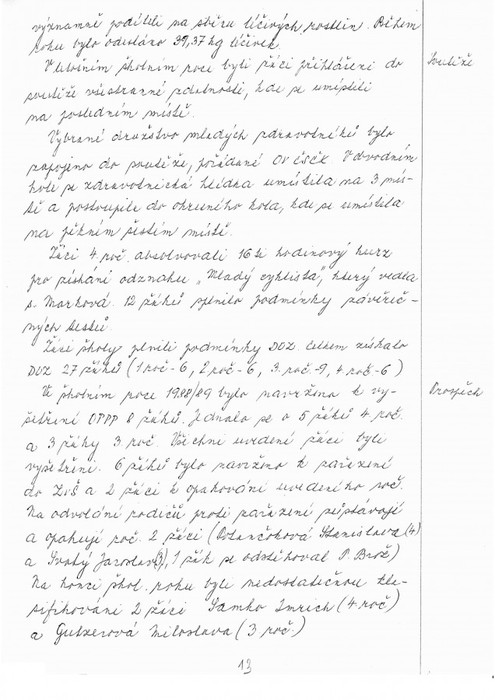 významně podíleli na sběru léčivých rostlin. Během
roku bylo odevzdáno 39,37 kg léčivek.
V letošním školním roce byli žáci přihlášeni do
Soutěže
soutěže všestranné zdatnosti, kde se umístili
na posledním místě.
Vybrané družstvo mladých zdravotníků bylo
zapojeno do soutěže, pořádané OV ČSČK. V obvodním
kole se zdravotnická hlídka umístila na 3 mís-
tě a postoupila do okresního kola, kde se umístila
na pěkném šestém místě.
Žáci 4. roč. absolvovali 16ti hodinový kurz
pro získání odznaku „Mladý cyklista", který vedla
s. Marková. 12 žáků splnilo podmínky závěreč-
ných testů.
Žáci školy plnili podmínky DOZ. Celkem získalo
DOZ 27 žáků (1. roč - 6, 2. roč - 6, 3. roč - 9, 4. roč - 6)
Ve školním roce 1988/89 bylo navrženo k vy-
Prospěch
šetření OPPP 8 žáků. Jednalo se o 5 žáků 4. roč.
a 3 žáky 3. roč. Všichni uvedení žáci byli
vyšetřeni. 6 žáků bylo navrženo k zařazení
do ZvŠ a 2 žáci k opakování uvedeného roč.
Na odvolání rodičů proti zařazení zůstávají
a opakují roč. 2 žáci ( Stanislava (4)
a Svatý Jaroslav (3), 1 žák se odstěhoval P. Brož)
Na konci škol. roku byli nedostatečnou kla-
sifikováni 2 žáci Samko Imrich (4 roč)
a Gutzerová Miloslava (3 roč.)
13